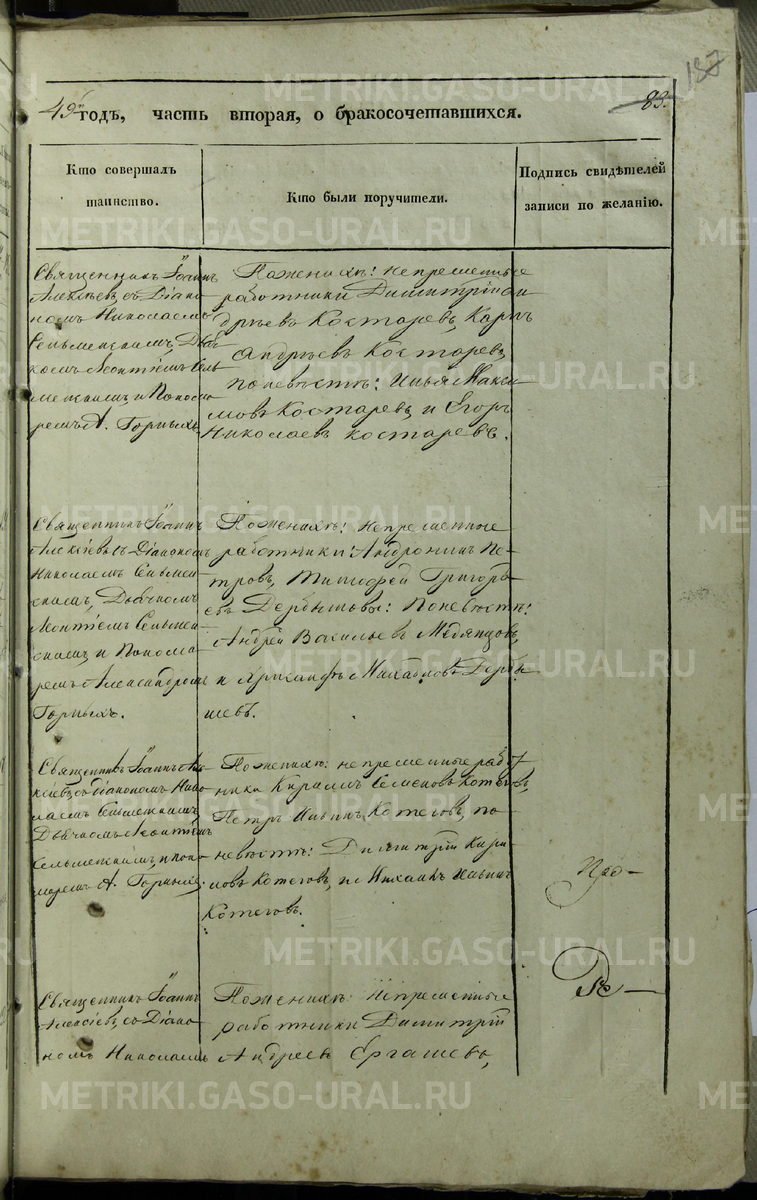 187
83.
49й годъ, часть вторая, о бракосочетавшихся.
Кто совершалъ таинство.
Кто были поручители.
Подпись свидѣтелей записи по желанію.
Священникъ Іоаннъ
Алексѣевъ съ Діако-
номъ Николаемъ
Сельменскимъ, Дьяч-
комъ Леонтіемъ Сель-
менскимъ и Поно-
ремъ А. Горныхъ.
По женихѣ: непременные
работники Димитрій Ан-
дрѣевъ Костаревъ, Карпъ
Андрѣевъ Костаревъ,
по невѣстѣ: Илья Макси-
мовъ Костаревъ и Егоръ
Николаевъ Костаревъ.
Священникъ Іоаннъ
Алексѣевъ съ Діакономъ
Николаемъ Сельмен-
скимъ, Дьячкомъ
Леонтіемъ Сельмен-
скимъ и Понома-
ремъ Александромъ
Горныхъ.
По женихѣ: непременные
работники: Андроникъ Пе-
тровъ, Тимофей Григорь-
евъ Дербышевы: По невѣстѣ:
Андрей Васильевъ Медянцовъ,
и Хрисанфъ Михайловъ Дербы-
шевъ.
Священникъ Іоаннъ Але-
ксѣевъ съ діакономъ Нико-
лаемъ Сельменскимъ,
Дьячкомъ Леонтіемъ
Сельменскимъ и поно-
маремъ А. Горныхъ.
По женихѣ: непременные работ-
ники Кирилъ Семеновъ Котеговъ,
Петръ Ильинъ Котеговъ, по
невѣстѣ: Димитрій Кири-
ловъ Котеговъ, и Михаилъ Ильинъ
Котеговъ.
Священникъ Іоаннъ
Алексѣевъ, съ Діако-
номъ Николаемъ
По женихѣ: Непременные
работники Димитрій
Андреевъ Ергашевъ,
METRIKI.GASO-URAL.RU